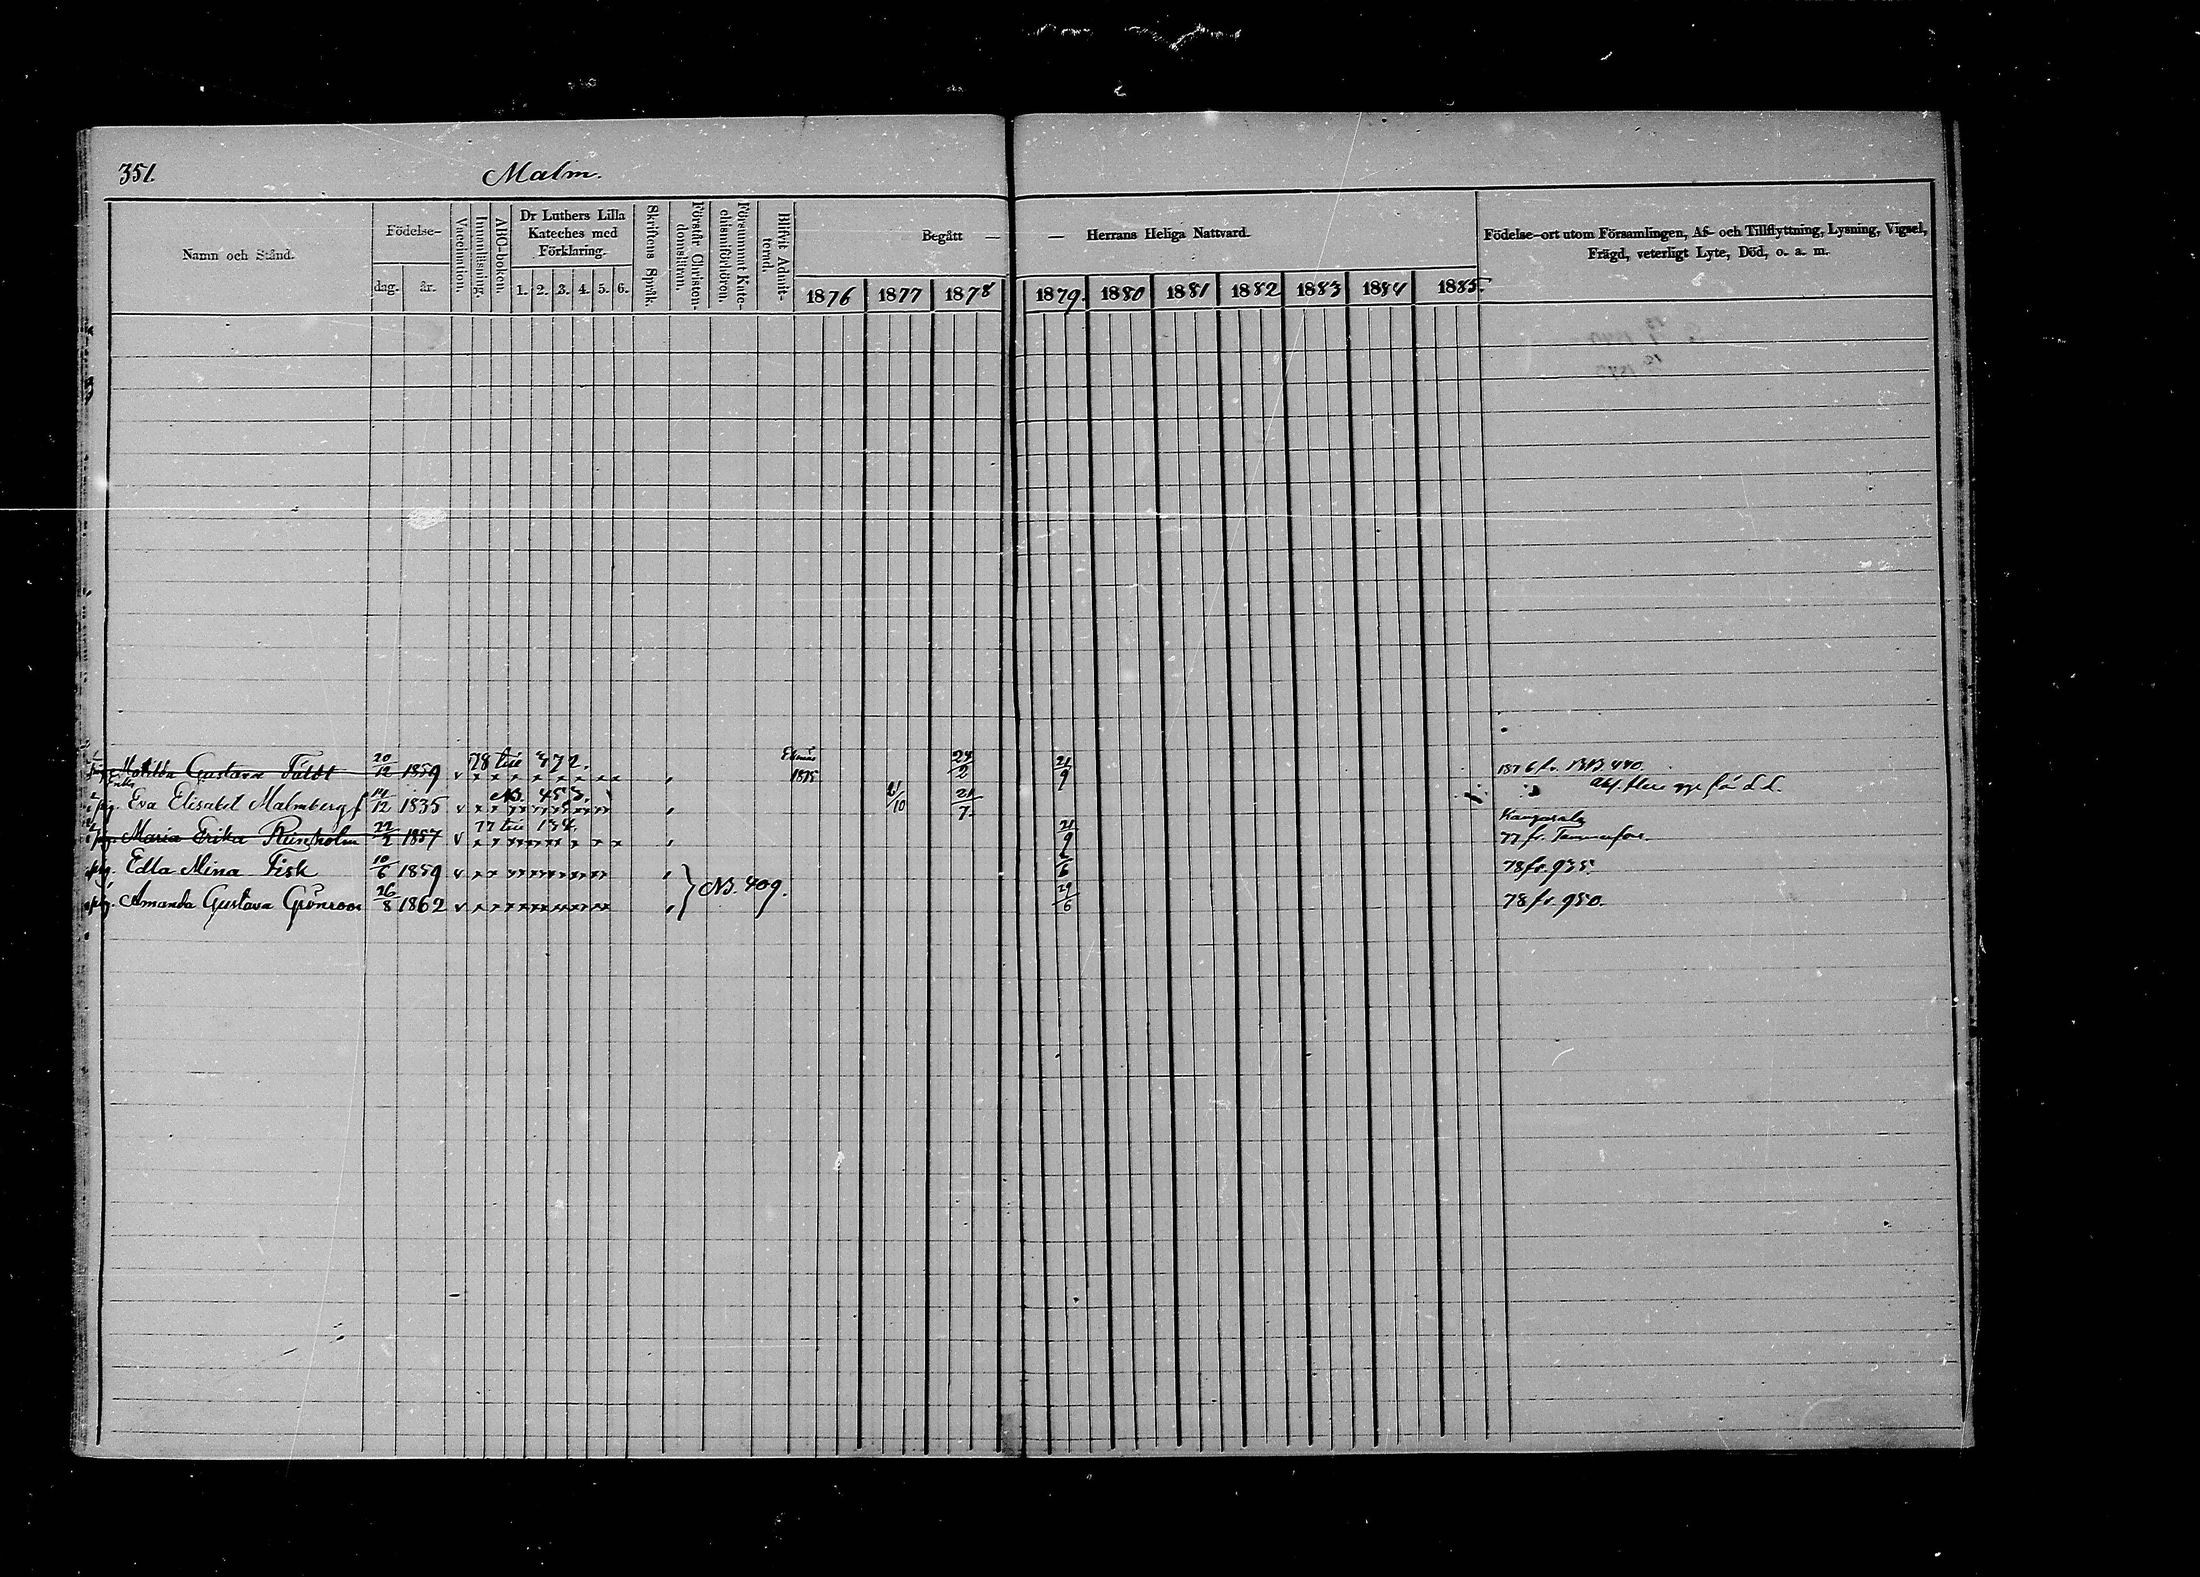 351.
Malm.
Namn och Stånd.
Födelse-
dag. år.
Vaccination.
Innanläsning.
ABC-boken.
Dr Luthers Lilla
Kateches med
Förklaring.
1. 2. 3. 4. 5. 6.
Skriftens Språk.
Förstår Christen-
domsläran.
Försummat Kate-
chismiförhören.
Blifvit Admit-
terad.
Begått — — Herrans Heliga Nattvard.
1876 1877 1878 1879. 1880 1881 1882 1883 1884 1885
Födelse-ort utom Församlingen, Af- och Tillflyttning, Lysning, Vigsel,
Frägd, veterligt Lyte, Död, o. a. m.
78 till 472. Ekenäs
Matilda Gustava Fäldt 20/12 1859 v 1875 24/2 21/9 1876 fr. BB 440.
Enka
NB. 453.
pig. Eva Elisabet Malmberg f. 14/12 1835 v 21/10 21/7
77 till 134. Kangasala
Maria Erika Reinholm 22/2 1857 v 21/9 77 fr. Tammerfors.
pig. Edla Mina Fisk 10/6 1859 v 6 78 fr. 935.
NB. 409.
pig. Amanda Gustava Grönroos 26/8 1862 v 29/6 78 fr. 950.